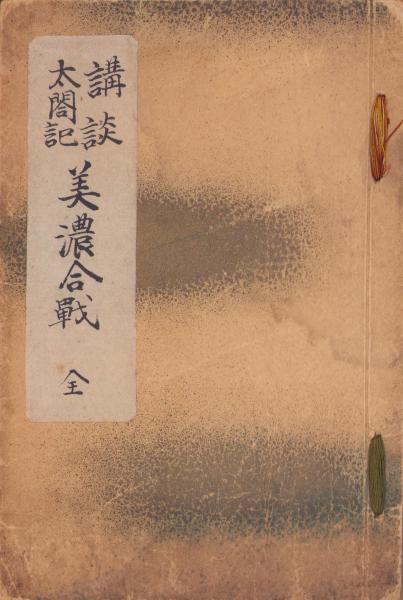 講談
太閤記
美濃合戰
全